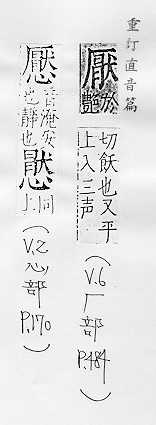 重訂直音篇
厭於艷切飫也又平
上入三声
(V.6厂部P.484)
懕音淹安
也靜也
同上
(V.2心部P.170)